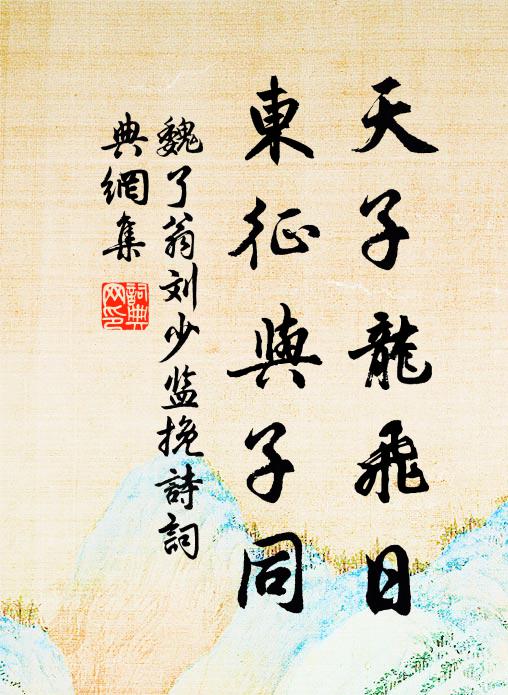 天子龍飛日
東征與子同
魏了翁刘少监挽詩詞
典網集
詞典
网印